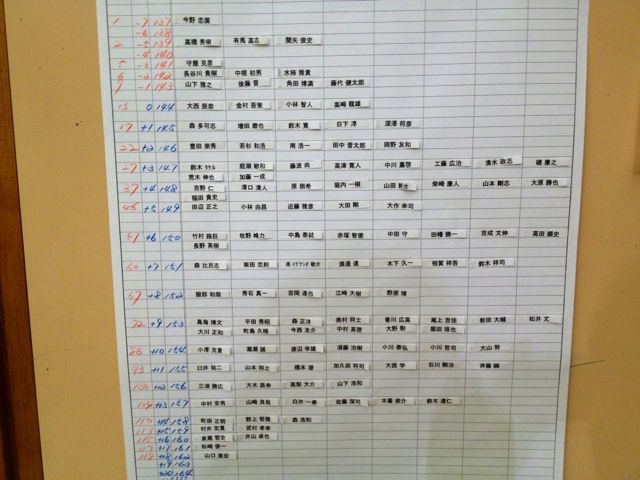 1 -7 137 今野 忠廣
-6 138
2 -5 139 高橋 秀樹 有馬 嘉志 関矢 俊史
-4 140
5 -3 141 守屋 克彦
6 -2 142 長谷川 貴樹 中根 初男 水柿 雅貴
7 -1 143 山下 雅之 後藤 晋 角田 博満 藤代 健太郎
0 144 大西 辰奈 金村 吾策 小林 智人 高崎 龍雄
17 +1 145 森 多可志 増田 磨也 鈴木 寛 日下 淳 深澤 将彦
22 +2 146 豊田 崇秀 若杉 和浩 南 浩一 田中 晋太郎 岡野 友和
27 +3 147 鈴木 庭瀬 敏和 藤波 尚 高津 寛人 中川 嘉啓 工藤 広治 清水 政志 礎 康之
荒木 伸也 加藤 一成
37 +4 148 吉野 仁 澤口 清人 原 朋希 堀内 一樹 山田 柴崎 康人 山本 剛志 大原 勝也
福田 貴史
46 +5 149 田辺 正之 小林 由昌 近藤 雅彦 大田 剛 大作 幸司
+6 150 竹村 路巨 牧野 峰力 中島 泰弑 赤塚 智徳 中田 守 田幡 勝一 吉成 文伸 高田 順史
長野 英樹
60 +7 151 森 比呂志 柴田 忠則 敬介 渡邉 達 木下 久一 相賀 祥吾 鈴木 祥司
67 +8 152 服部 和哉 秀石 真一 吉岡 道也 江崎 大樹 野原 博
72 +9 153 鳥海 博文 平田 秀昭 森 正洋 奥村 将士 香川 広高 尾上 吉佳 新田 大輔 松井 丈
大川 正和 町島 久晴 今西 圭介 中村 英啓 大野 勲 堀田 琢也
86 +10 154 小澤 克重 瀧瀬 誠 渡辺 幸雄 須藤 浩樹 小川 泰弘 小川 哲司 大山 努
93 +11 155 臼井 祐二 山本 将之 橋本 潜 加久田 将司 大西 学 石川 剛治 斉藤 嗣
102 +12 156 三浦 勝広 大木 昌幸 高梨 大介 山下 浩和
+13 157 中村 安男 山崎 良哉 臼井 一寿 佐藤 潔司 木暮 俊介 鈴木 達仁
110 +14 158 町田 正明 野上 哲雅 森 浩和
113 +15 159 村井 宏貴 武村 孝幸
115 +16 160 泉尾 哲史 井山 卓也
117 +17 161 松崎 俊一
118 +18 162 山口 雅宏
+19 163
+20 164